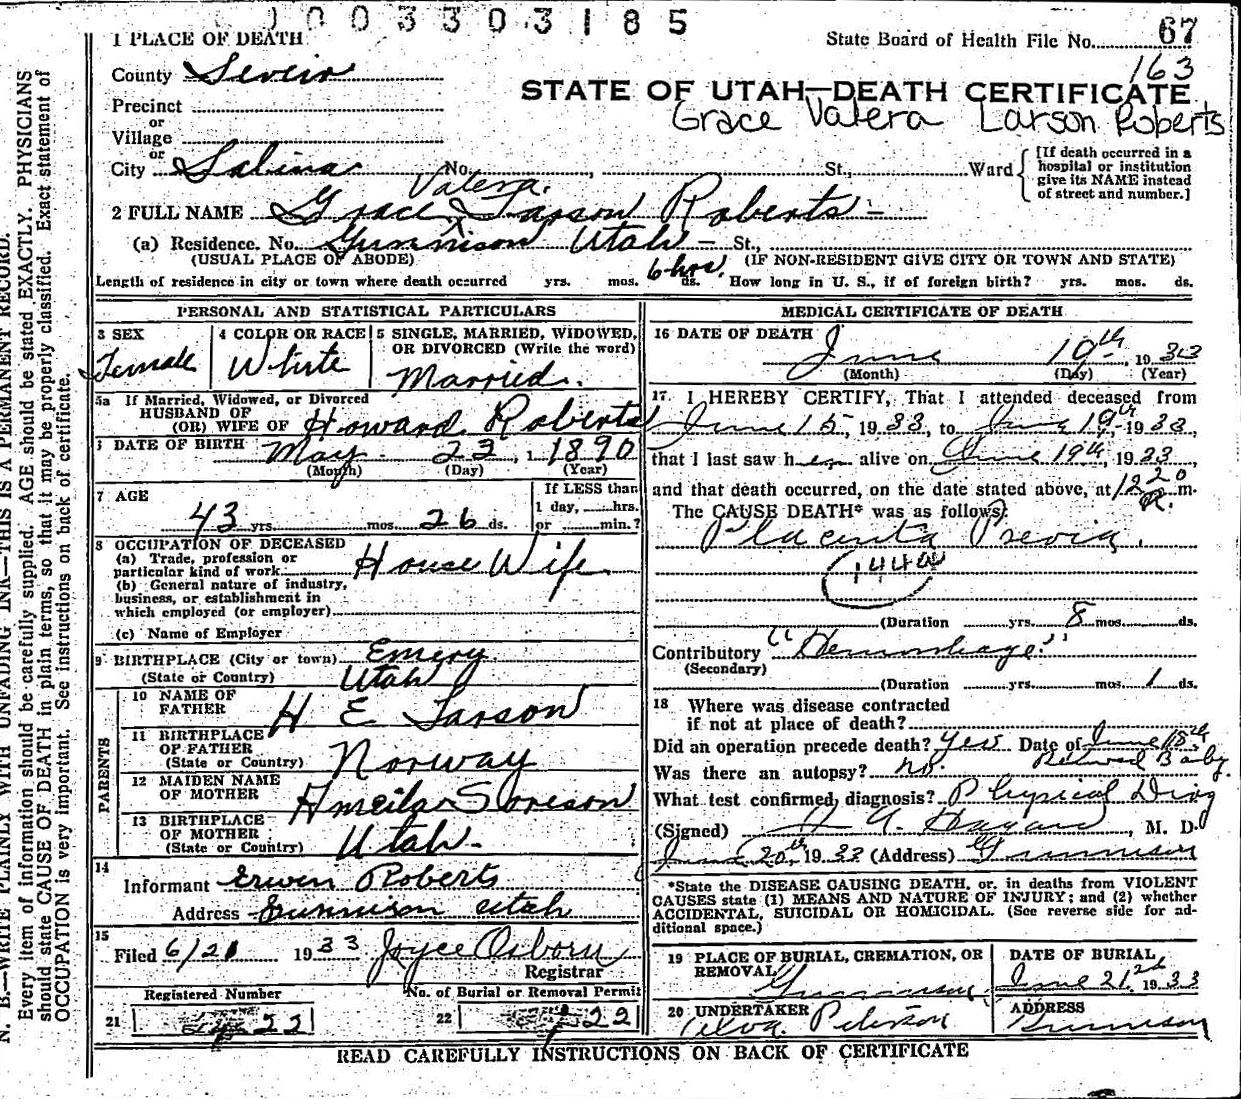 1003303185
1 PLACE OF DEATH
State Board of Health File No. 67
163
County Sevier
STATE OF UTAH—DEATH CERTIFICATE
Precinct
or
Grace Valera Larson Roberts
Village
or
City Salina No. St., Ward
[If death occurred in a
hospital or institution
give its NAME instead
of street and number.]
Valera
2 FULL NAME Grace Larson Roberts -
(a) Residence. No. Gunnison Utah - St.,
(USUAL PLACE OF ABODE) (IF NON-RESIDENT GIVE CITY OR TOWN AND STATE)
6 hrs.
Length of residence in city or town where death occurred yrs. mos. ds. How long in U. S., if of foreign birth? yrs. mos. ds.
PERSONAL AND STATISTICAL PARTICULARS
3 SEX
Female
4 COLOR OR RACE
White
5 SINGLE, MARRIED, WIDOWED,
OR DIVORCED (Write the word)
Married.
5a If Married, Widowed, or Divorced
HUSBAND OF
(OR) WIFE OF Howard Roberts
DATE OF BIRTH May 23, 1890
(Month) (Day) (Year)
7 AGE
43 yrs. mos. 26 ds.
If LESS than
1 day, hrs.
or min.?
8 OCCUPATION OF DECEASED
(a) Trade, profession or
particular kind of work House Wife
(b) General nature of industry,
business, or establishment in
which employed (or employer)
(c) Name of Employer
9 BIRTHPLACE (City or town) Emery
(State or Country) Utah
PARENTS
10 NAME OF
FATHER H E Larson
11 BIRTHPLACE
OF FATHER
(State or Country) Norway
12 MAIDEN NAME
OF MOTHER Ameilar Soreson
13 BIRTHPLACE
OF MOTHER
(State or Country) Utah.
14
Informant Erwen Roberts
Address Gunnison Utah
15
Filed 6/21 1933 Joyce Osborn
Registrar
Registered Number
21 22
No. of Burial or Removal Permit
22 22
MEDICAL CERTIFICATE OF DEATH
16 DATE OF DEATH
June 19th, 1933
(Month) (Day) (Year)
17. I HEREBY CERTIFY, That I attended deceased from
June 15, 1933, to June 19th, 1933,
that I last saw her alive on June 19th, 1933
and that death occurred, on the date stated above, at 1220 a.m.
The CAUSE DEATH* was as follows:
Placinta Previa.
144a
(Duration yrs. 8 mos. ds.
Contributory "Hemorrhage."
(Secondary)
(Duration yrs. mos. 1 ds.
18 Where was disease contracted
if not at place of death?
Did an operation precede death? Yes Date of June 18th
Was there an autopsy? No. Baby.
What test confirmed diagnosis? Physical Diag
(Signed) Hagan, M. D.
June 20th 1933 (Address) Gunnison
*State the DISEASE CAUSING DEATH, or, in deaths from VIOLENT
CAUSES state (1) MEANS AND NATURE OF INJURY; and (2) whether
ACCIDENTAL, SUICIDAL OR HOMICIDAL. (See reverse side for ad-
ditional space.)
19 PLACE OF BURIAL, CREMATION, OR
REMOVAL Gunnison
DATE OF BURIAL
June 21 1933
20 UNDERTAKER
Alva Peterson
ADDRESS
Gunnison
READ CAREFULLY INSTRUCTIONS ON BACK OF CERTIFICATE
N. B.—WRITE PLAINLY WITH UNFADING INK—THIS IS A PERMANENT RECORD.
Every item of information should be carefully supplied. AGE should be stated EXACTLY. PHYSICIANS
should state CAUSE OF DEATH in plain terms, so that it may be properly classified. Exact statement of
OCCUPATION is very important. See instructions on back of certificate.